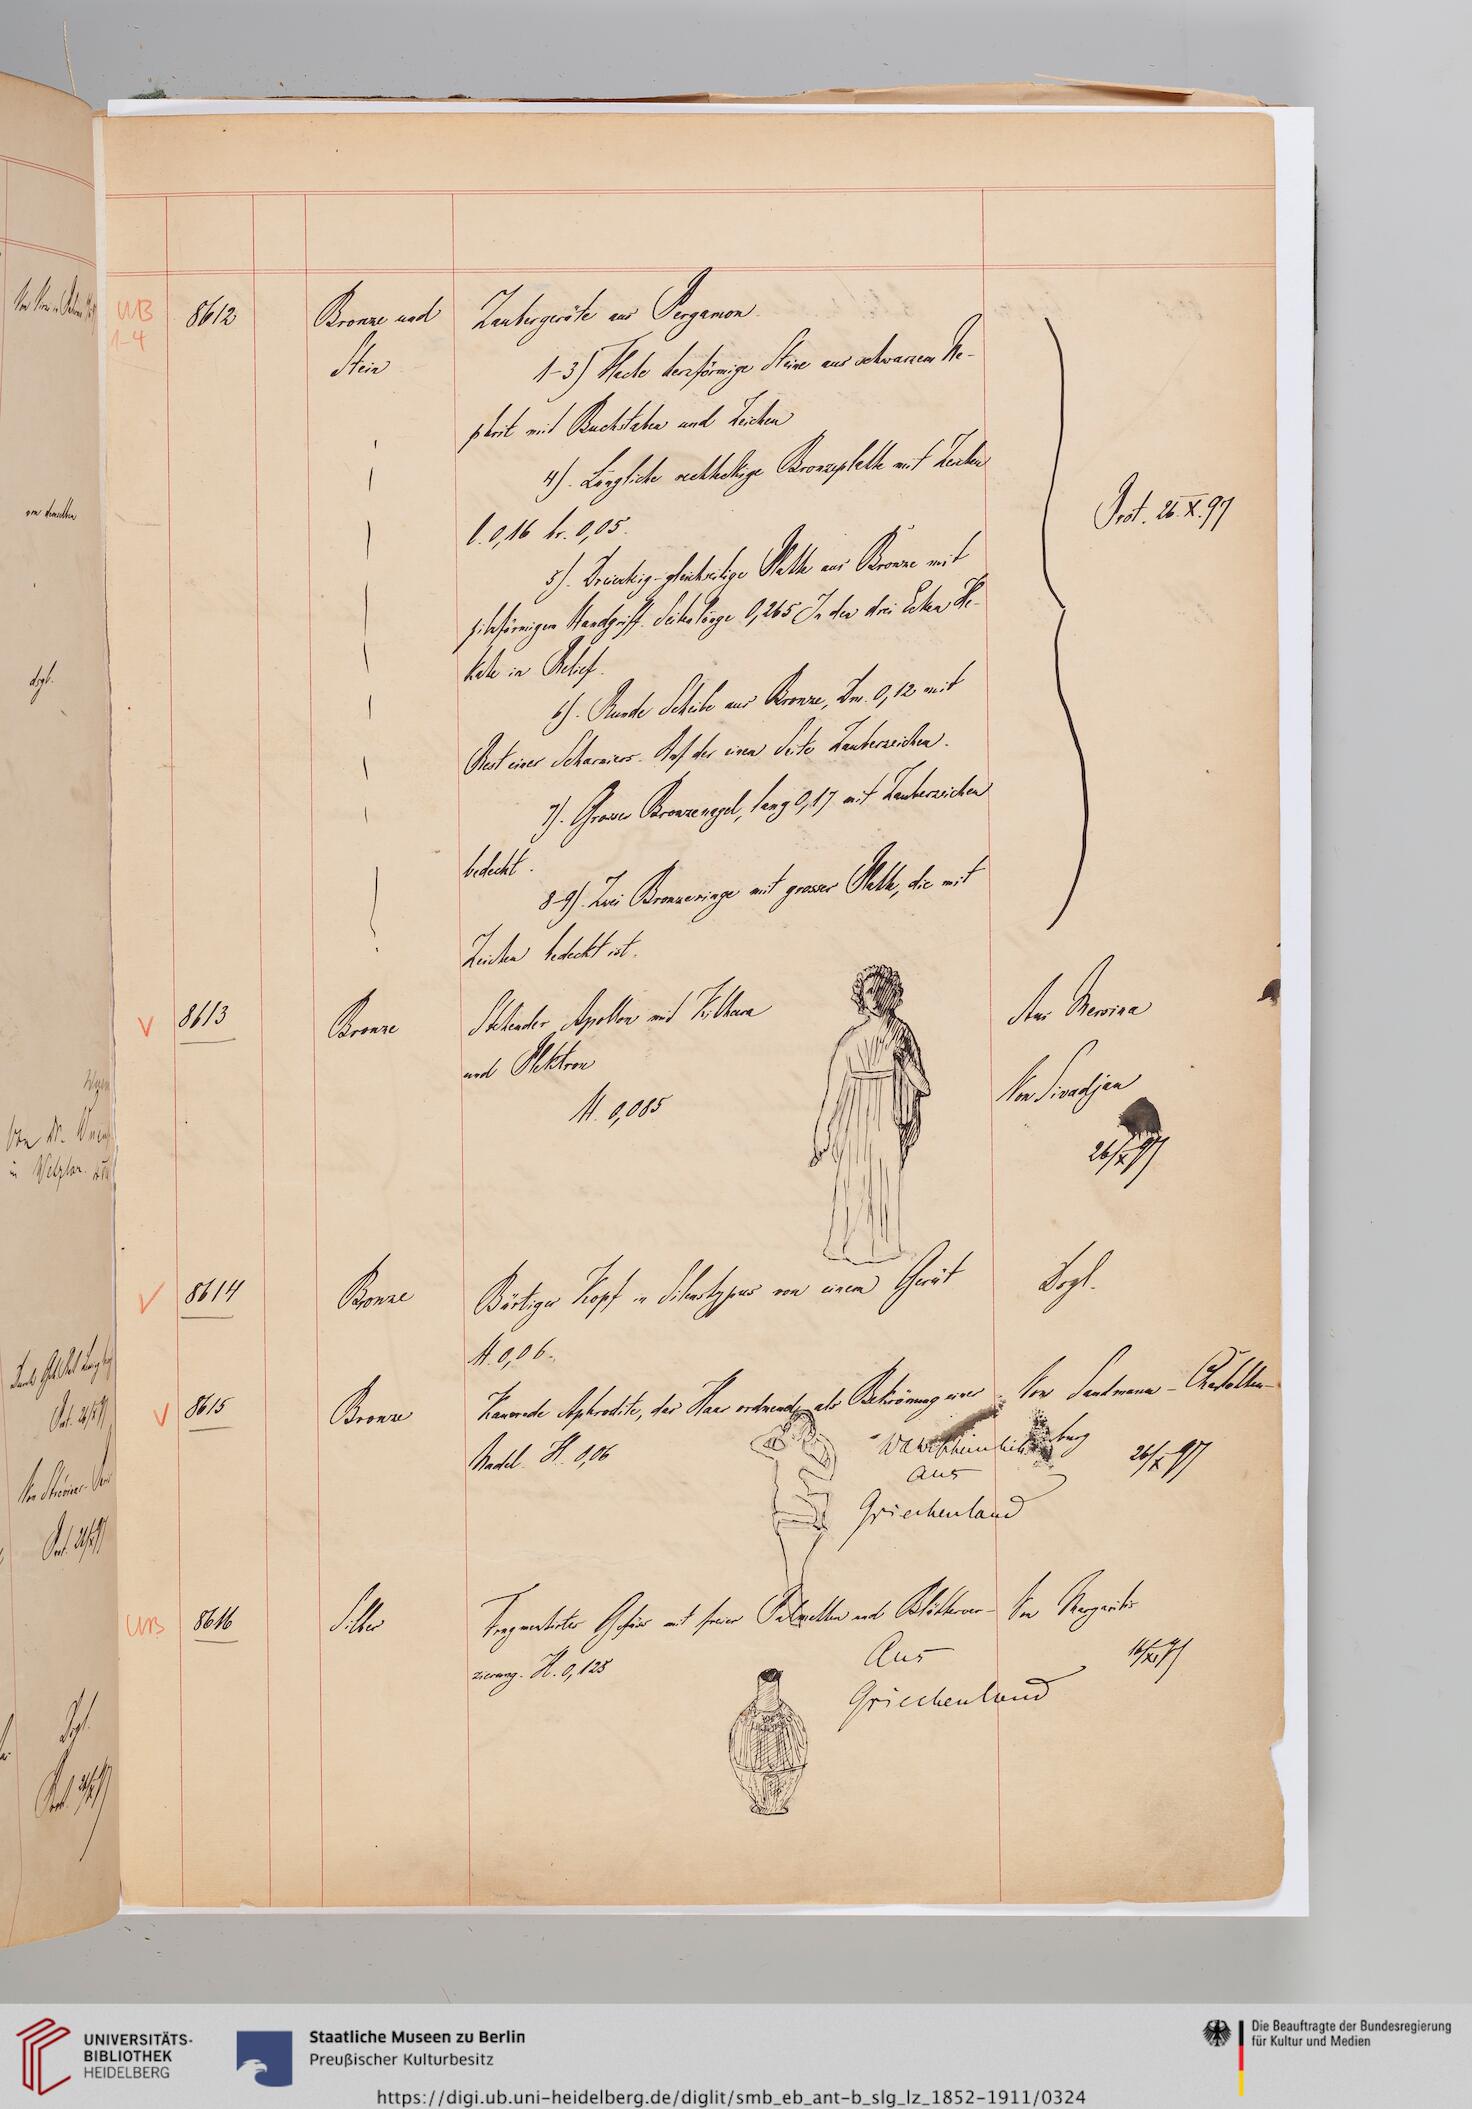 WB
1-4
8612
Bronze und
Stein
Zaubergeräte aus Pergamon.
1-3) Flache herzförmige Steine aus schwarzem Ne-
phrit mit Buchstaben und Zeichen
4). Längliche rechteckige Bronzeplatte mit Zeichen
l. 0,16 br. 0,05.
5). Dreieckig-gleichseitige Platte aus Bronze mit
pilzförmigem Handgriff. Seitenlänge 0,265 In den drei Ecken He-
kate in Relief.
6). Runde Scheibe aus Bronze, Dm. 0,12 mit
Rest eines Scharniers. Auf der einen Seite Zauberzeichen.
7). Grosser Bronzenagel, lang 0,17 mit Zauberzeichen
bedeckt.
8-9). Zwei Bronzeringe mit grosser Platte, die mit
Zeichen bedeckt ist.
Prot. 26.X.97
V
8613
Bronze
Stehender Apollon mit Kithara
und Plektron
H. 0,085
Aus
Von Sivadjan
26/X 97
V
8614
Bronze
Bärtiger Kopf in Silenstypus von einem Gerät
H. 0,06.
Dsgl.
V
8615
Bronze
Kauernde Aphrodite, das Haar ordnend, als Bekrönung einer
Nadel. H. 0,06
Wahrscheinlich
aus
Griechenland
Von Sandmann - Charlotten-
burg
26/X 97
WB
8616
Silber
Fragmentirtes Gefäss mit freier Palmetten und Blätterver-
zierung. H. 0,125
Aus
Griechenland
Von Margaritis
16/XI 97
von demselben
dsgl.
Von Dr.
in Wetzlar.
Dsgl.
UNIVERSITÄTS-
BIBLIOTHEK
HEIDELBERG
Staatliche Museen zu Berlin
Preußischer Kulturbesitz
Die Beauftragte der Bundesregierung
für Kultur und Medien
https://digi.ub.uni-heidelberg.de/diglit/smb_eb_ant-b_slg_lz_1852-1911/0324